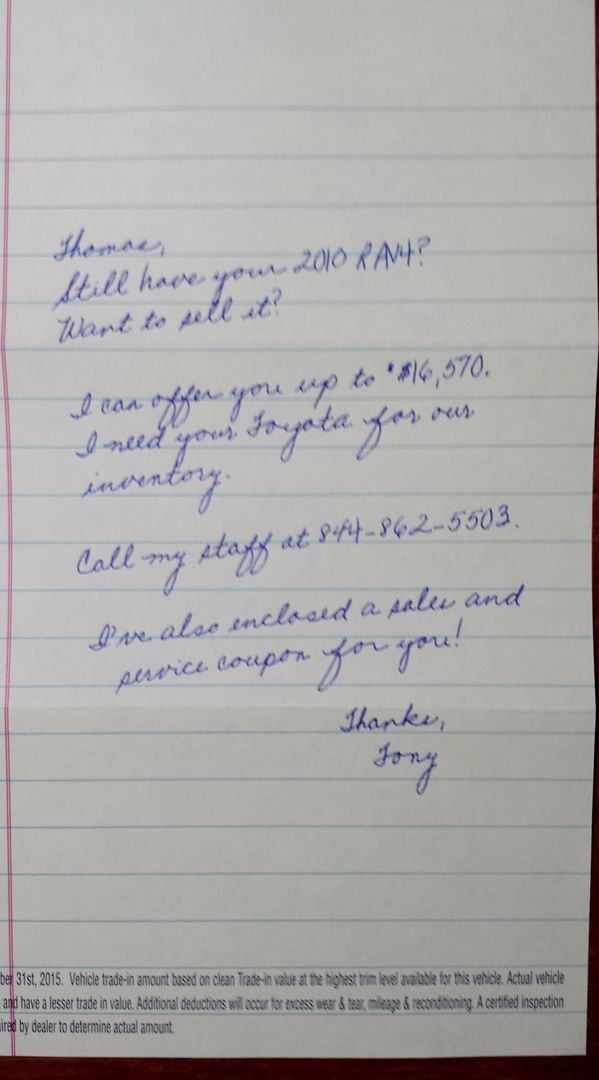 Thomas,
Still have your 2010 RAV4?
Want to sell it?
I can offer you up to *$16,570.
I need your Toyota for our
inventory.
Call my staff at 844-862-5503.
I've also enclosed a sales and
service coupon for you!
Thanks,
Tony
ber 31st, 2015. Vehicle trade-in amount based on clean Trade-in value at the highest trim level available for this vehicle. Actual vehicle
and have a lesser trade in value. Additional deductions will occur for excess wear & tear, mileage & reconditioning. A certified inspection
ired by dealer to determine actual amount.